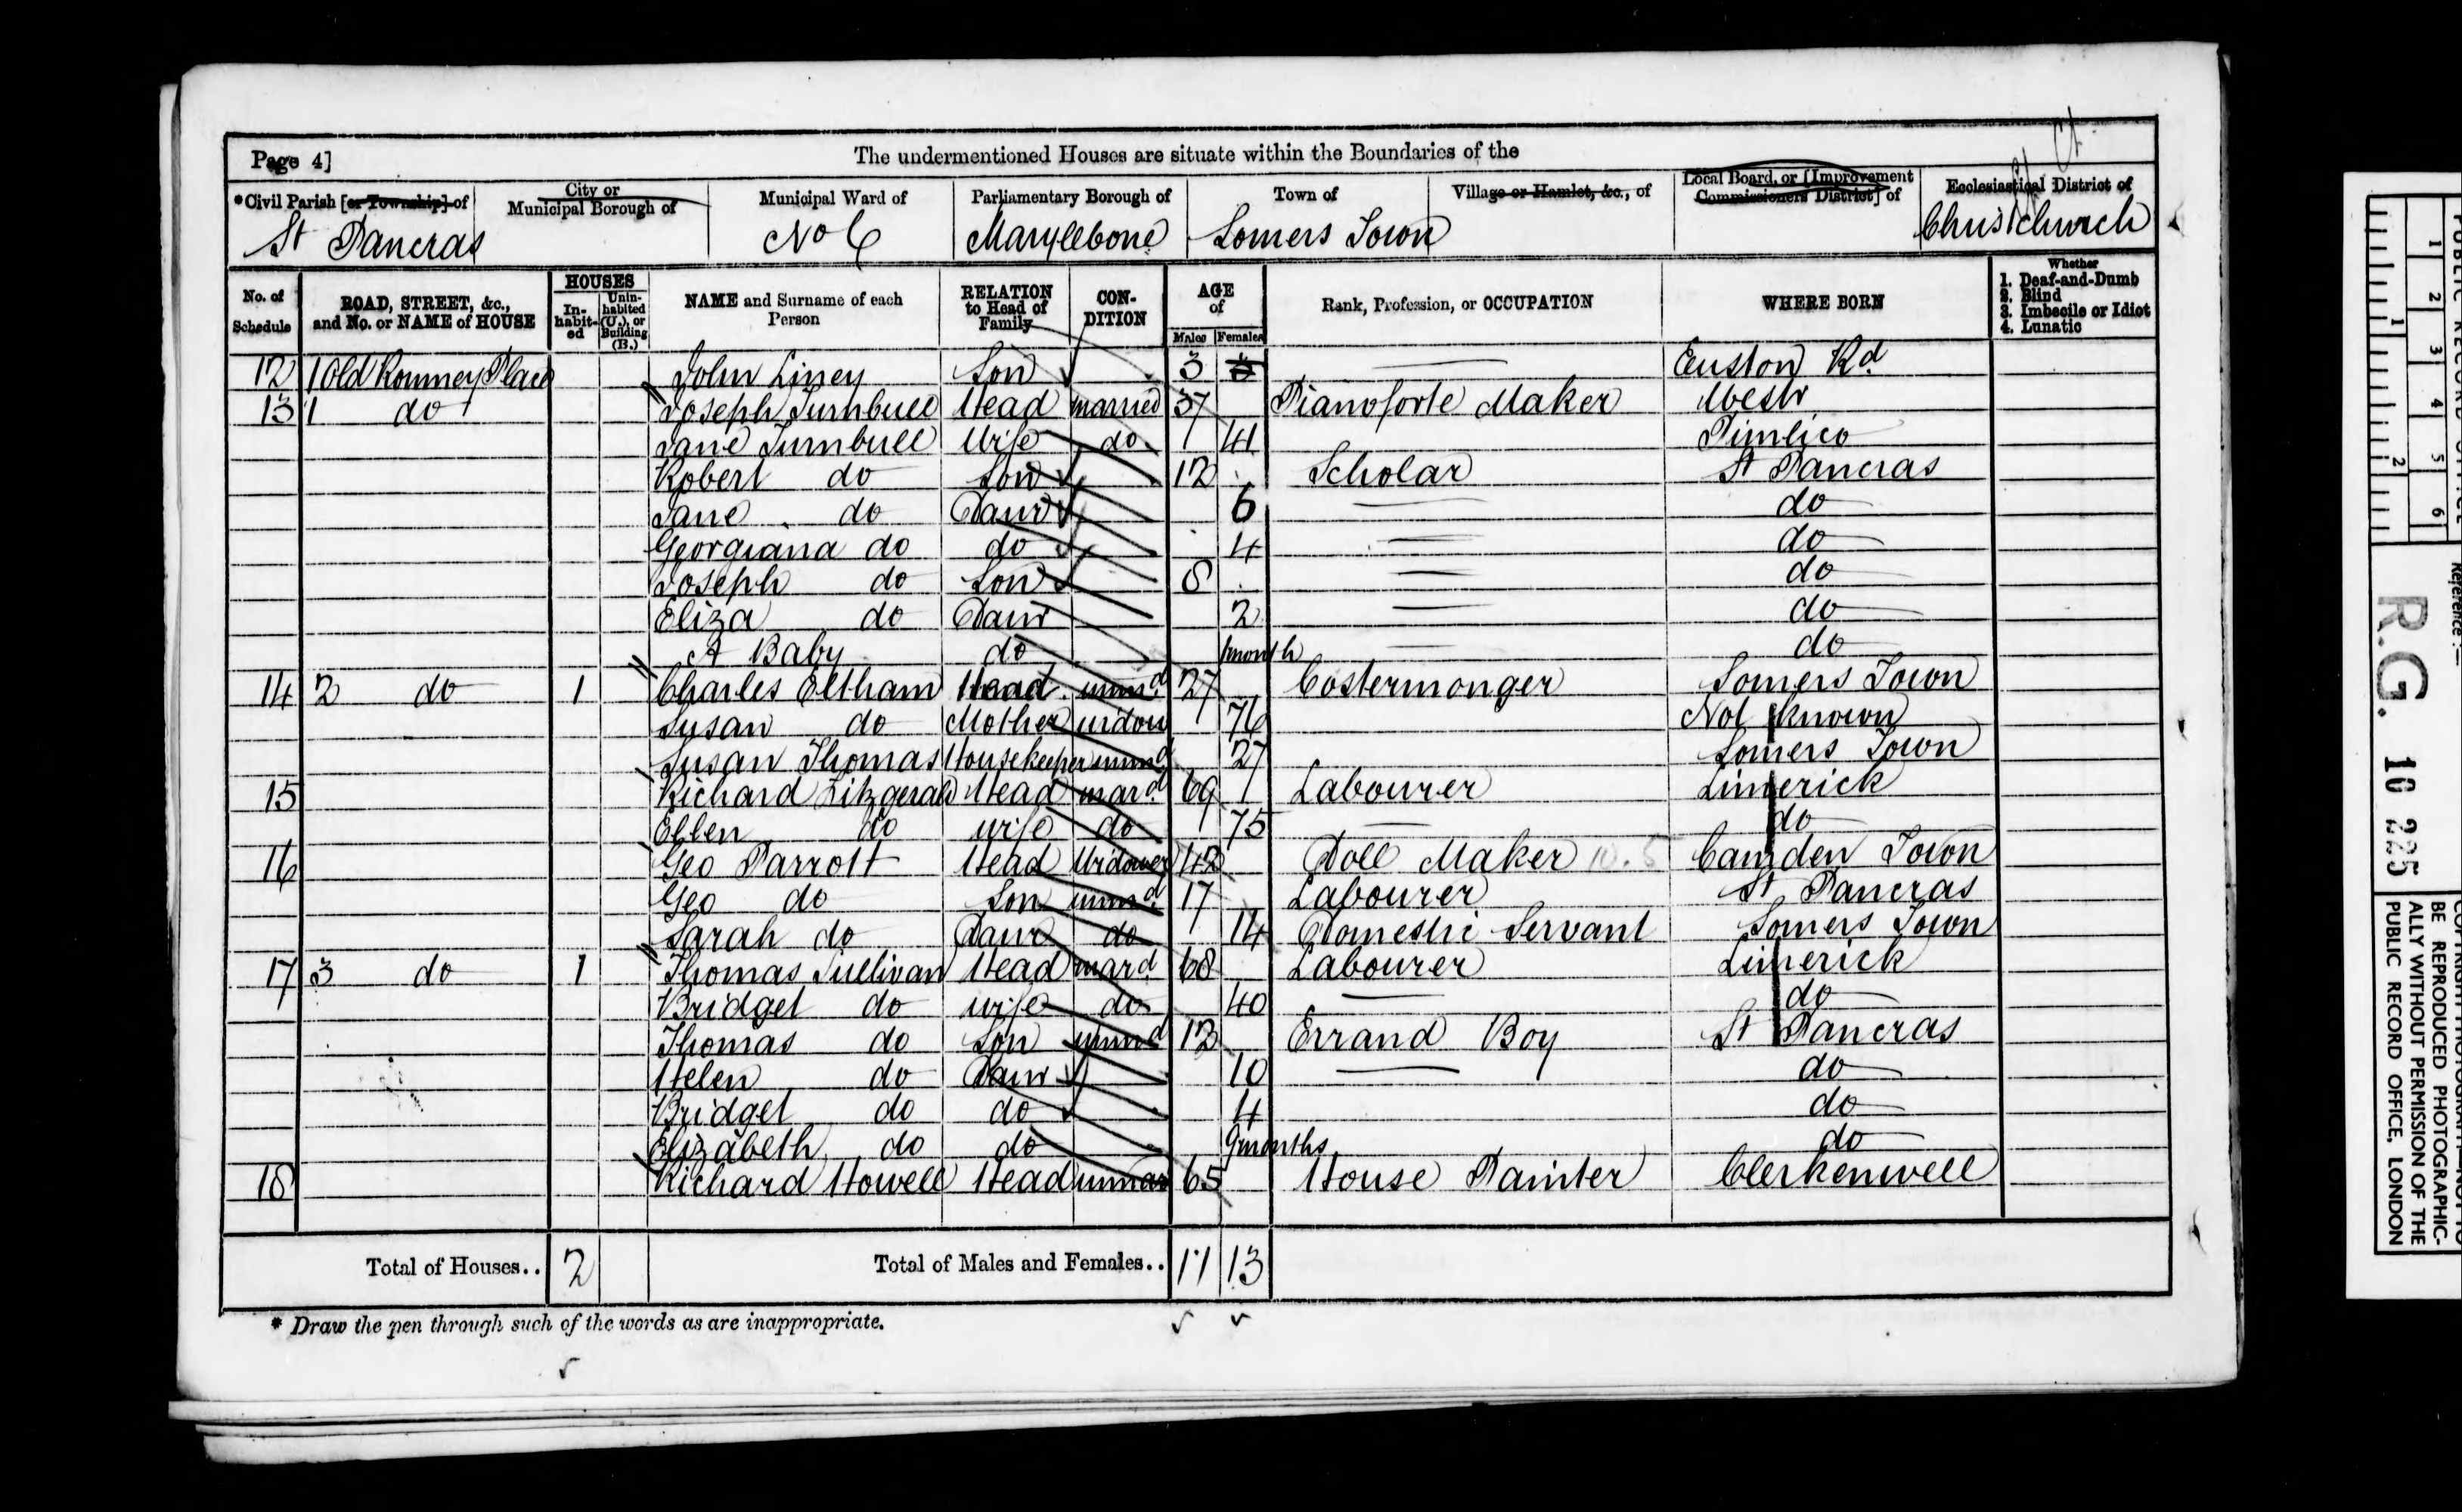 Page 4]
The undermentioned Houses are situate within the Boundaries of the
*Civil Parish [or Township] of
City or Municipal Borough of
Municipal Ward of
Parliamentary Borough of
Town of
Village or Hamlet, &c., of
Local Board, or [Improvement Commissioners District] of
Ecclesiastical District of
St Pancras No 6 Marylebone Somers Town Christchurch
No. of Schedule
ROAD, STREET, &c., and No. or NAME of HOUSE
HOUSES
In-habit-ed
Unin-habited (U.), or Building (B.)
NAME and Surname of each Person
RELATION to Head of Family
CON-DITION
AGE of
Males Females
Rank, Profession, or OCCUPATION
WHERE BORN
Whether
1. Deaf-and-Dumb
2. Blind
3. Imbecile or Idiot
4. Lunatic
12 1 Old Romney Place John Liney Son 3 Euston Rd
13 1 do Joseph Turnbull Head married 37 Pianoforte Maker
Jane Turnbull Wife do 41 Pimlico
Robert do Son 12 Scholar St Pancras
Jane do Daur 6 do
Georgiana do do 4 do
Joseph do Son 8 do
Eliza do Daur 2 do
A Baby do 1 month do
14 2 do 1 Charles Eltham Head unmd 27 Costermonger Somers Town
Susan do Mother widow 76 Not known
Susan Thomas Housekeeper unmd 27 Somers Town
15 Richard Fitzgerald Head mard 69 Labourer Limerick
Ellen do wife do 75 do
16 Geo Parrott Head Widower 42 Doll Maker 10.5 Camden Town
Geo do Son unmd 17 Labourer St Pancras
Sarah do Daur do 14 Domestic Servant Somers Town
17 3 do 1 Thomas Sullivan Head mard 68 Labourer Limerick
Bridget do wife do 40 do
Thomas do Son unmd 12 Errand Boy St Pancras
Helen do Daur 10 do
Bridget do do 4 do
Elizabeth do do 9 months do
18 Richard Howell Head unmar 65 House Painter Clerkenwell
Total of Houses.. 2 Total of Males and Females.. 11 13
* Draw the pen through such of the words as are inappropriate.
1 2 3 4 5 6
1 2
Reference:-
R.G. 10 225
BE REPRODUCED PHOTOGRAPHIC-
ALLY WITHOUT PERMISSION OF THE
PUBLIC RECORD OFFICE, LONDON